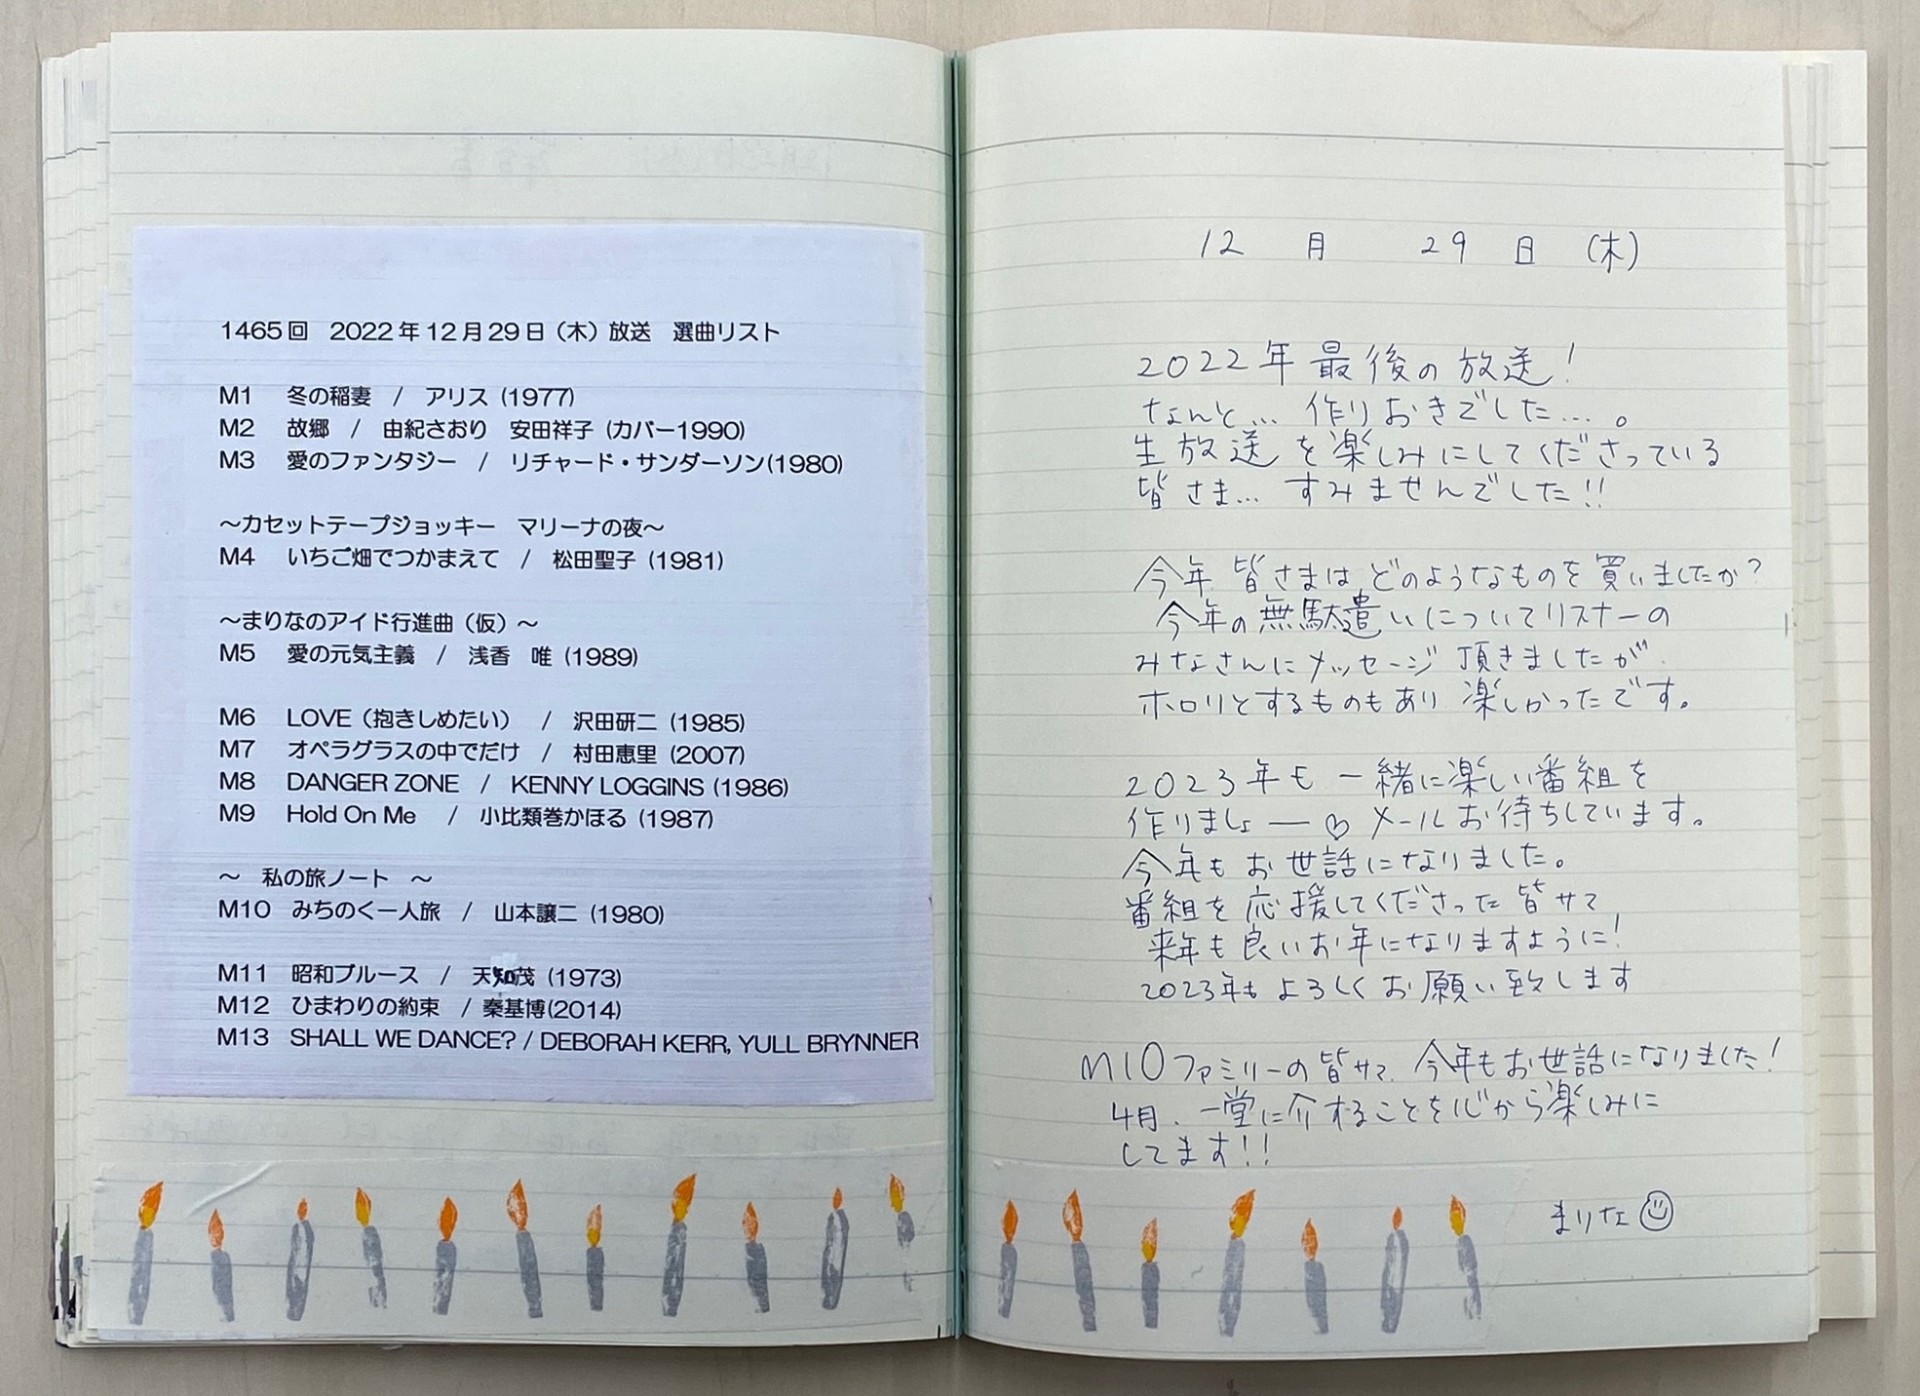 1465回　2022年12月29日（木）放送　選曲リスト
M1　冬の稲妻　/　アリス (1977)
M2　故郷　/　由紀さおり　安田祥子 (カバー1990)
M3　愛のファンタジー　/　リチャード・サンダーソン(1980)
～カセットテープジョッキー　マリーナの夜～
M4　いちご畑でつかまえて　/　松田聖子 (1981)
～まりなのアイド行進曲（仮）～
M5　愛の元気主義　/　浅香　唯 (1989)
M6　LOVE（抱きしめたい）　/　沢田研二 (1985)
M7　オペラグラスの中でだけ　/　村田恵里 (2007)
M8　DANGER ZONE　/　KENNY LOGGINS (1986)
M9　Hold On Me　/　小比類巻かほる (1987)
～　私の旅ノート　～
M10　みちのく一人旅　/　山本譲二 (1980)
M11　昭和ブルース　/　天知茂 (1973)
M12　ひまわりの約束　/ 秦基博(2014)
M13　SHALL WE DANCE? / DEBORAH KERR, YULL BRYNNER
12　月　29　日　(木)
2022年最後の放送！
なんと… 作りおきでした…。
生放送を楽しみにしてくださっている
皆さま… すみませんでした!!
今年、皆さまは、どのようなものを買いましたか？
今年の無駄遣いについてリスナーの
みなさんにメッセージ頂きましたが
ホロリとするものもあり 楽しかったです。
2023年も一緒に楽しい番組を
作りましょー♡ メールお待ちしています。
今年もお世話になりました。
番組を応援してくださった皆サマ
来年も良いお年になりますように！
2023年もよろしくお願い致します
M10ファミリーの皆サマ、今年もお世話になりました！
4月、一堂に介することを心から楽しみに
してます!!
まりな☺